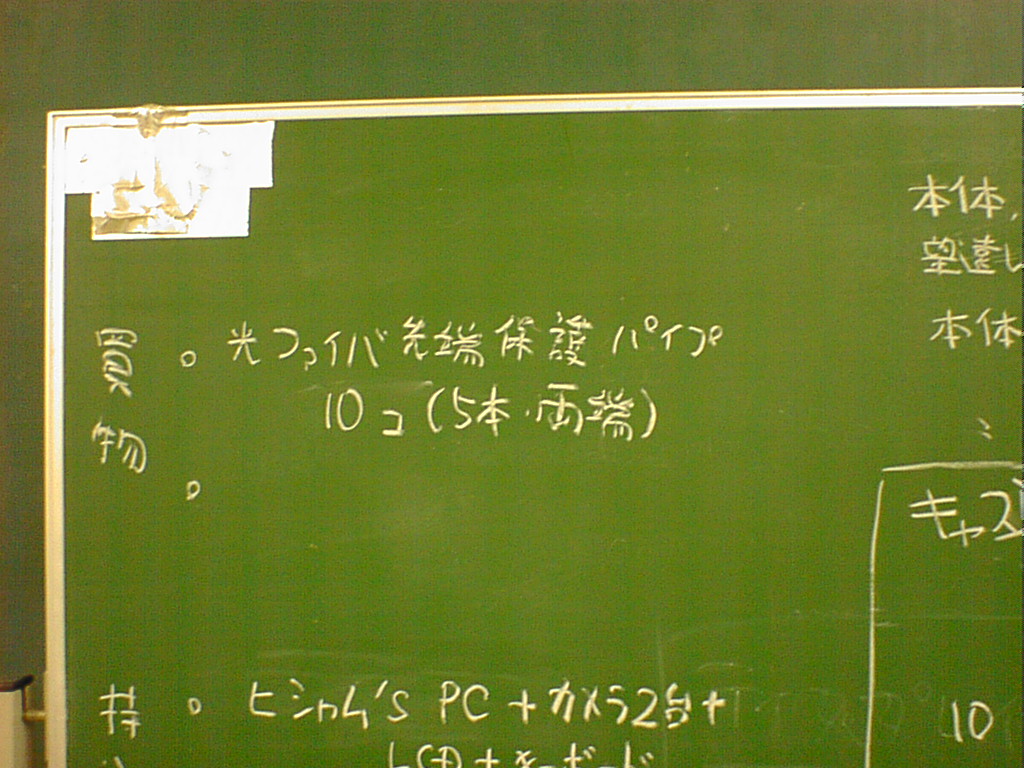 買物
。光ファイバ先端保護パイプ
10コ(5本・両端)
。
持
。ヒシャム's PC+カメラ2台+
LCD+キーボード
本体,
望遠し
本体
キャス
10